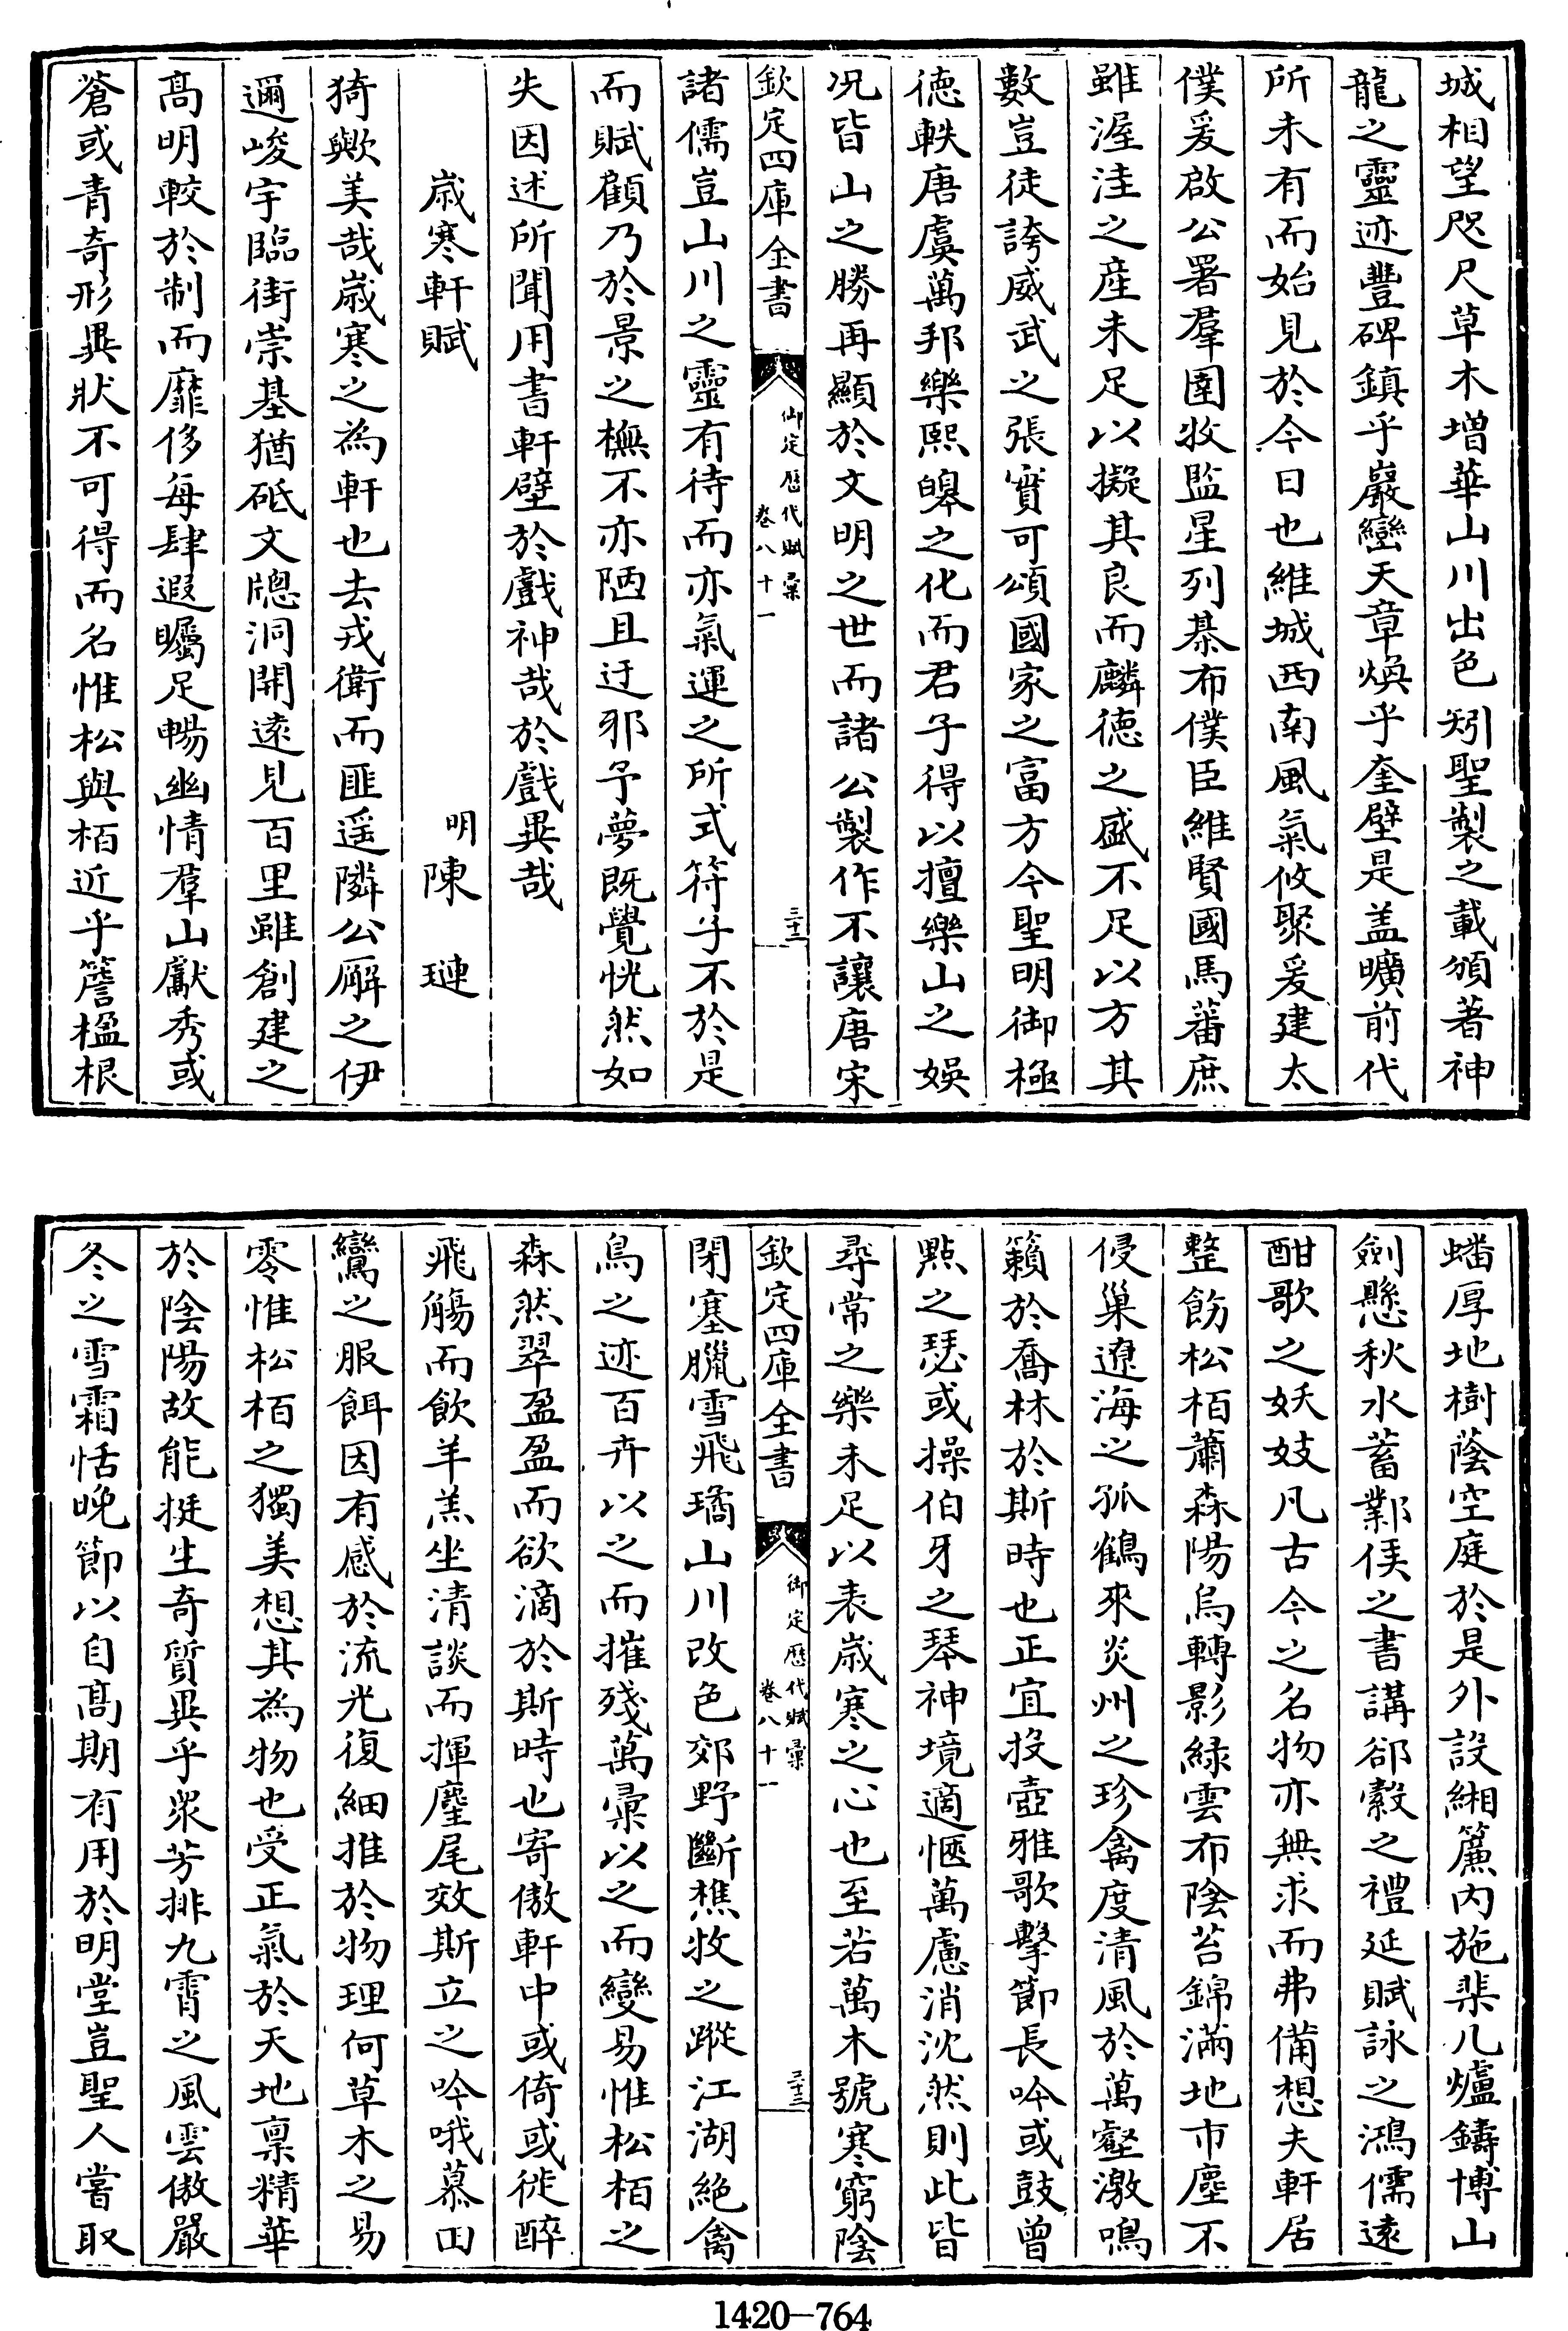 城相望咫尺草木増華山川出色矧聖製之載頒著神
龍之靈迹豐碑鎮乎巖巒天章煥乎奎壁是盖曠前代
所未有而始見於今日也維城西南風氣攸聚爰建太
僕爰啟公署羣圉牧監星列棊布僕臣維賢國馬蕃庶
雖渥洼之産未足以擬其良而麟徳之盛不足以方其
數豈徒誇威武之張實可頌國家之富方今聖明御極
徳軼唐虞萬邦樂熙皥之化而君子得以擅樂山之娛
况皆山之勝再顯於文明之世而諸公製作不讓唐宋
欽定四庫全書
御定歴代賦彙
卷八十一
三十二
諸儒豈山川之靈有待而亦氣運之所式符乎不於是
而賦顧乃於景之橅不亦陋且迂邪予夢既覺恍然如
失因述所聞用書軒壁於戲神哉於戲異哉
歲寒軒賦
明陳璉
猗歟美哉嵗寒之為軒也去戎衛而匪遥隣公廨之伊
邇峻宇臨街崇基猶砥文牕洞開逺見百里雖創建之
髙明較於制而靡侈每肆遐矚足暢幽情羣山獻秀或
蒼或青奇形異狀不可得而名惟松與栢近乎簷楹根
蟠厚地樹蔭空庭於是外設緗簾内施棐几爐鑄博山
劍懸秋水蓄鄴侯之書講郤縠之禮延賦詠之鴻儒逺
酣歌之妖妓凡古今之名物亦無求而弗備想夫軒居
整飭松栢蕭森陽烏轉影緑雲布陰苔錦滿地市塵不
侵巢遼海之孤鶴來炎州之珍禽度清風於萬壑激鳴
籟於喬林於斯時也正宜投壺雅歌擊節長吟或鼓曽
㸃之瑟或操伯牙之琴神境適愜萬慮消沈然則此皆
尋常之樂未足以表嵗寒之心也至若萬木號寒窮陰
欽定四庫全書
御定歴代賦彙
卷八十一
三十三
閉塞臘雪飛璚山川改色郊野斷樵牧之蹤江湖絶禽
鳥之迹百卉以之而摧殘萬彚以之而變易惟松栢之
森然翠盈盈而欲滴於斯時也寄傲軒中或倚或徙醉
飛觴而飲羊羔坐清談而揮麈尾效斯立之吟哦慕田
鸞之服餌因有感於流光復細推於物理何草木之易
零惟松栢之獨美想其為物也受正氣於天地稟精華
於陰陽故能挺生竒質異乎衆芳排九霄之風雲傲嚴
冬之雪霜恬晚節以自髙期有用於明堂豈聖人嘗取
1420—764